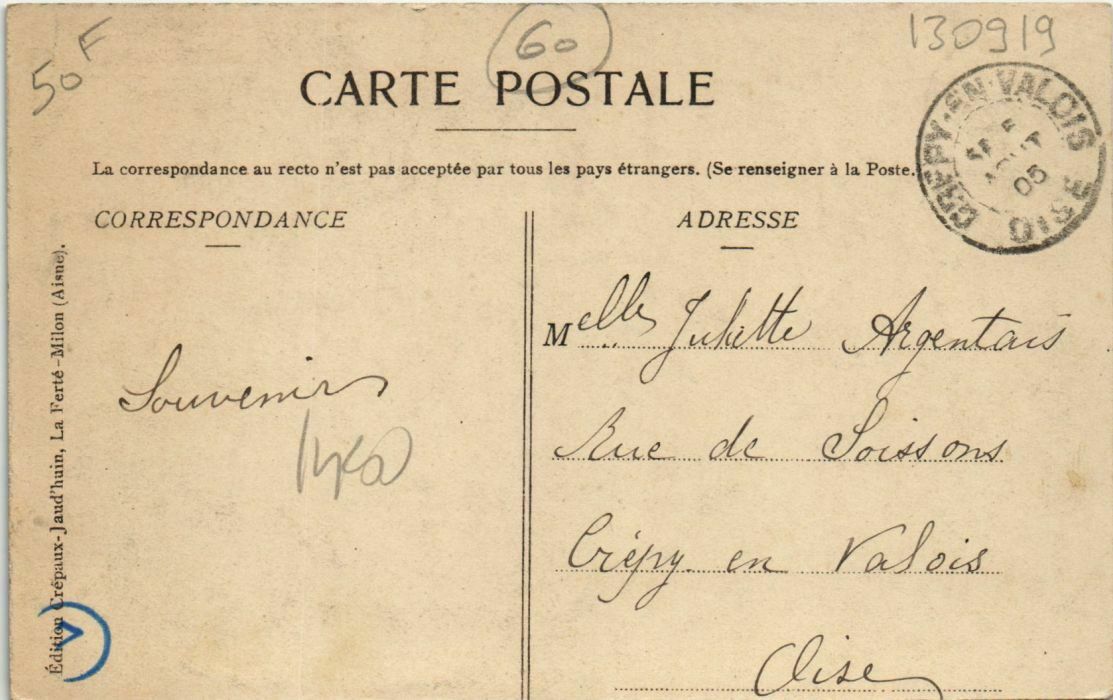 50 F
60
130919
CARTE POSTALE
La correspondance au recto n'est pas acceptée par tous les pays étrangers. (Se renseigner à la Poste.
CRÉPY-EN-VALOIS
AOUT
05
OISE
CORRESPONDANCE
ADRESSE
Souvenir
Melle Juliette Argentais
Rue de Soissons
Crépy en Valois
Oise
Édition Crépaux-Jaud'huin, La Ferté-Milon (Aisne).